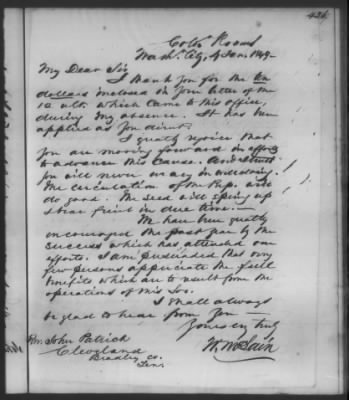 424.
Colo. Rooms
Wash. City, 4 Jan. 1849
My Dear Sir
I thank you for the ten
dollars enclosed in your letter of the
12 ult. which came to this office,
during my absence. It has been
applied as you direct.
I greatly rejoice that
you are moving forward in efforts
to advance this cause. And I trust
you will never weary in welldoing.
The circulation of the Rep. will
do good. The seed will spring up
& bear fruit in due time.
We have been greatly
encouraged the past year by the
success which has attended our
efforts. I am persuaded that very
few persons appreciate the full
benefits which are to result from the
operations of this Soc.
I shall always
be glad to hear from you
Yours very truly
W. McLain
Rev. John Patrick
Cleveland
Bradley Co.
Tenn.